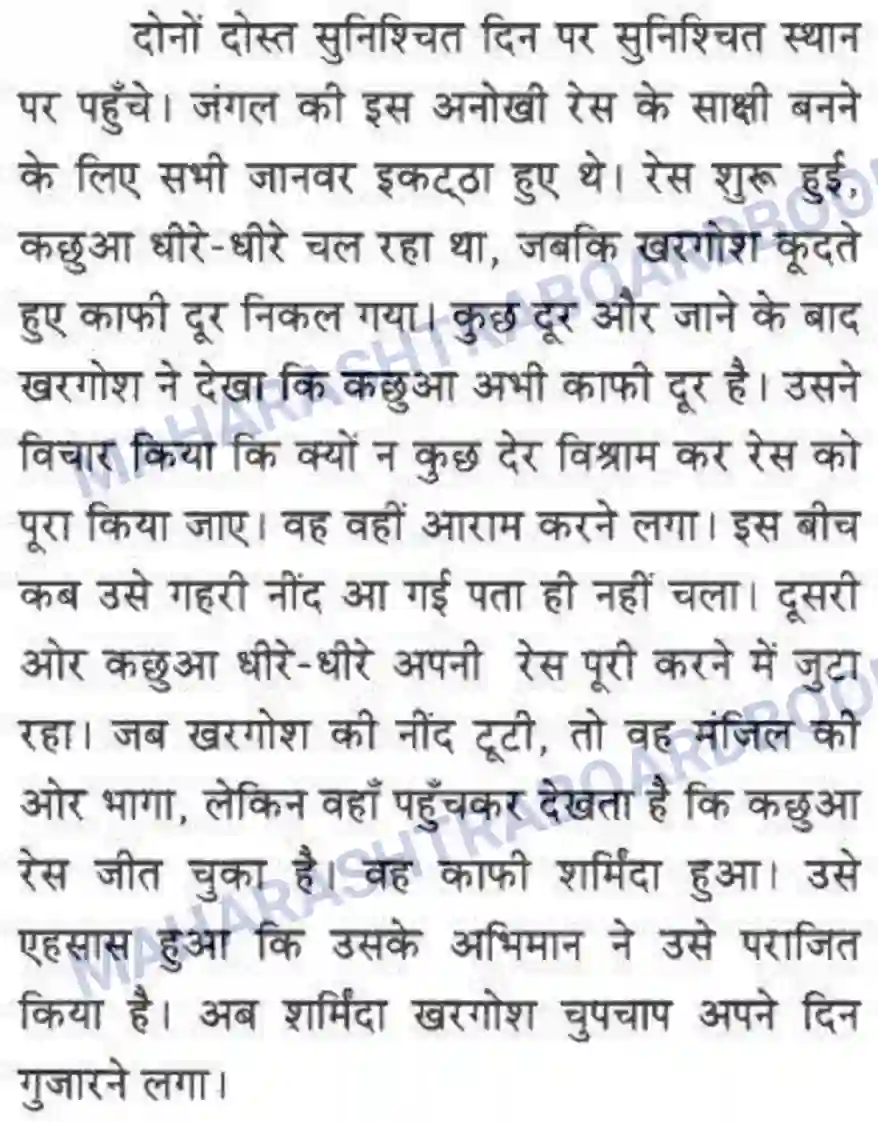 दोनों दोस्त सुनिश्चित दिन पर सुनिश्चित स्थान
पर पहुँचे। जंगल की इस अनोखी रेस के साक्षी बनने
के लिए सभी जानवर इकट्ठा हुए थे। रेस शुरू हुई,
कछुआ धीरे-धीरे चल रहा था, जबकि खरगोश कूदते
हुए काफी दूर निकल गया। कुछ दूर और जाने के बाद
खरगोश ने देखा कि कछुआ अभी काफी दूर है। उसने
विचार किया कि क्यों न कुछ देर विश्राम कर रेस को
पूरा किया जाए। वह वहीं आराम करने लगा। इस बीच
कब उसे गहरी नींद आ गई पता ही नहीं चला। दूसरी
ओर कछुआ धीरे-धीरे अपनी रेस पूरी करने में जुटा
रहा। जब खरगोश की नींद टूटी, तो वह मंजिल की
ओर भागा, लेकिन वहाँ पहुँचकर देखता है कि कछुआ
रेस जीत चुका है। वह काफी शर्मिंदा हुआ। उसे
एहसास हुआ कि उसके अभिमान ने उसे पराजित
किया है। अब शर्मिंदा खरगोश चुपचाप अपने दिन
गुजारने लगा।
MAHARASHTRABOARDBOO
MAHARASHTRABOARDBOO